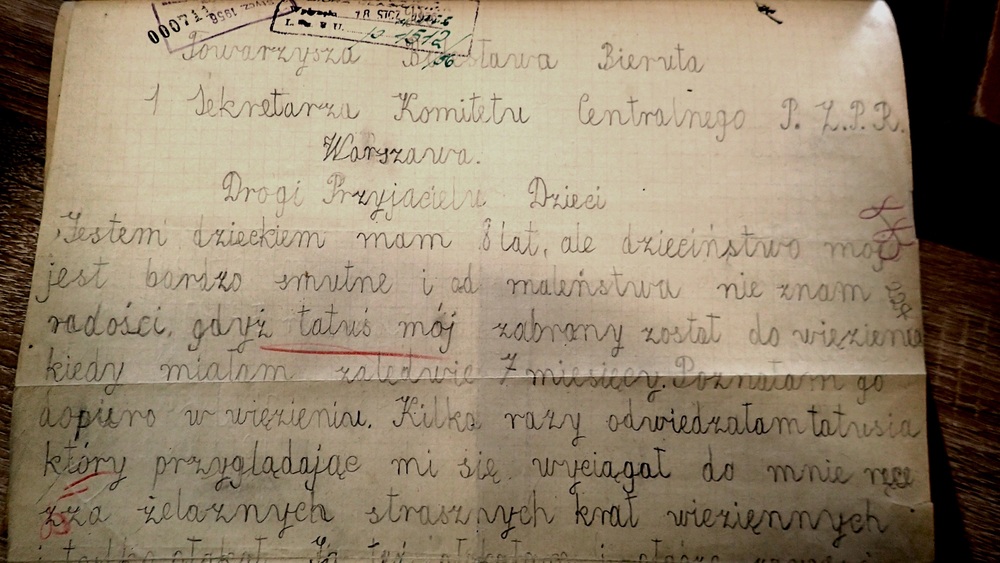 000711
1956
Wpłynęło
I. Dz. U.
p-1512/56
Towarzysza Bolesława Bieruta
1 Sekretarza Komitetu Centralnego P.Z.P.R.
Warszawa.
Drogi Przyjacielu Dzieci
Jestem dzieckiem mam 8 lat, ale dzieciństwo moje
jest bardzo smutne i od maleństwa nie znam
radości, gdyż tatuś mój zabrany został do wiezienia
kiedy miałam zaledwie 7 miesięcy. Poznałam go
dopiero w więzieniu. Kilka razy odwiedzałam tatusia
który przyglądając mi się wyciągał do mnie ręce
zza żelaznych strasznych krat wieziennych
i tylko płakał. Ja też płakałam i